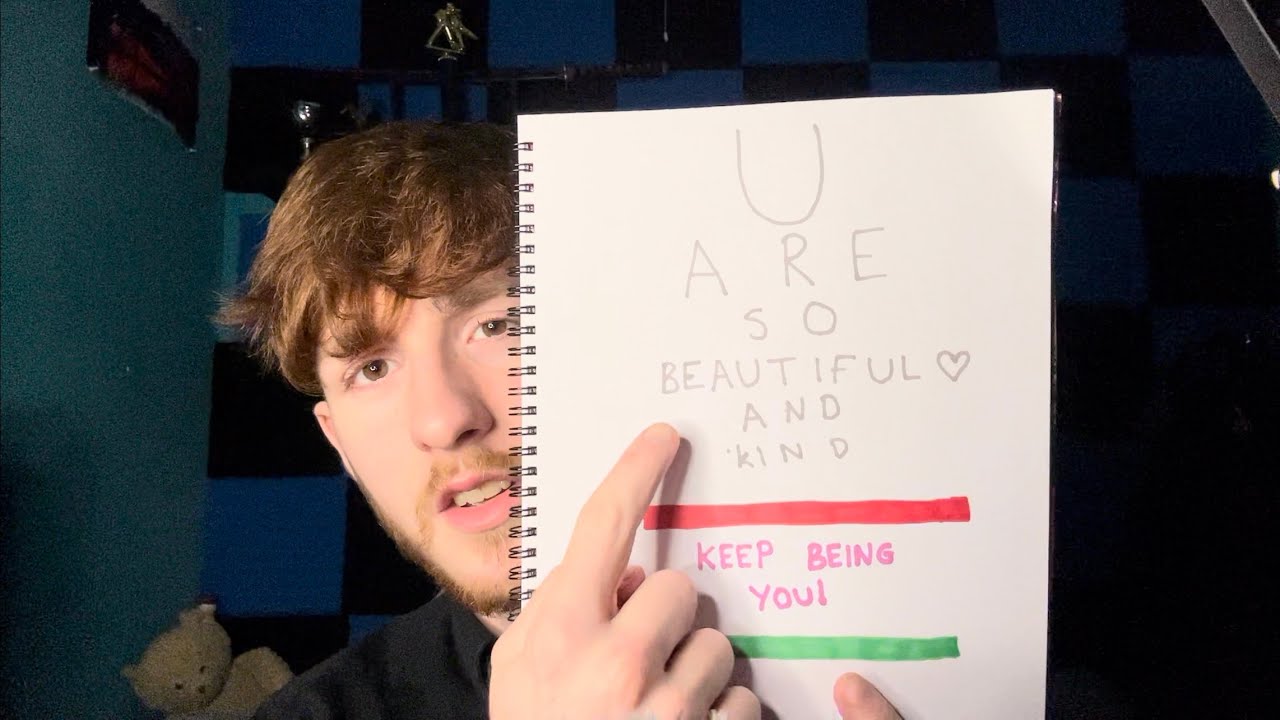 U
ARE
SO
BEAUTIFUL ♡
AND
KIND
KEEP BEING
YOU!